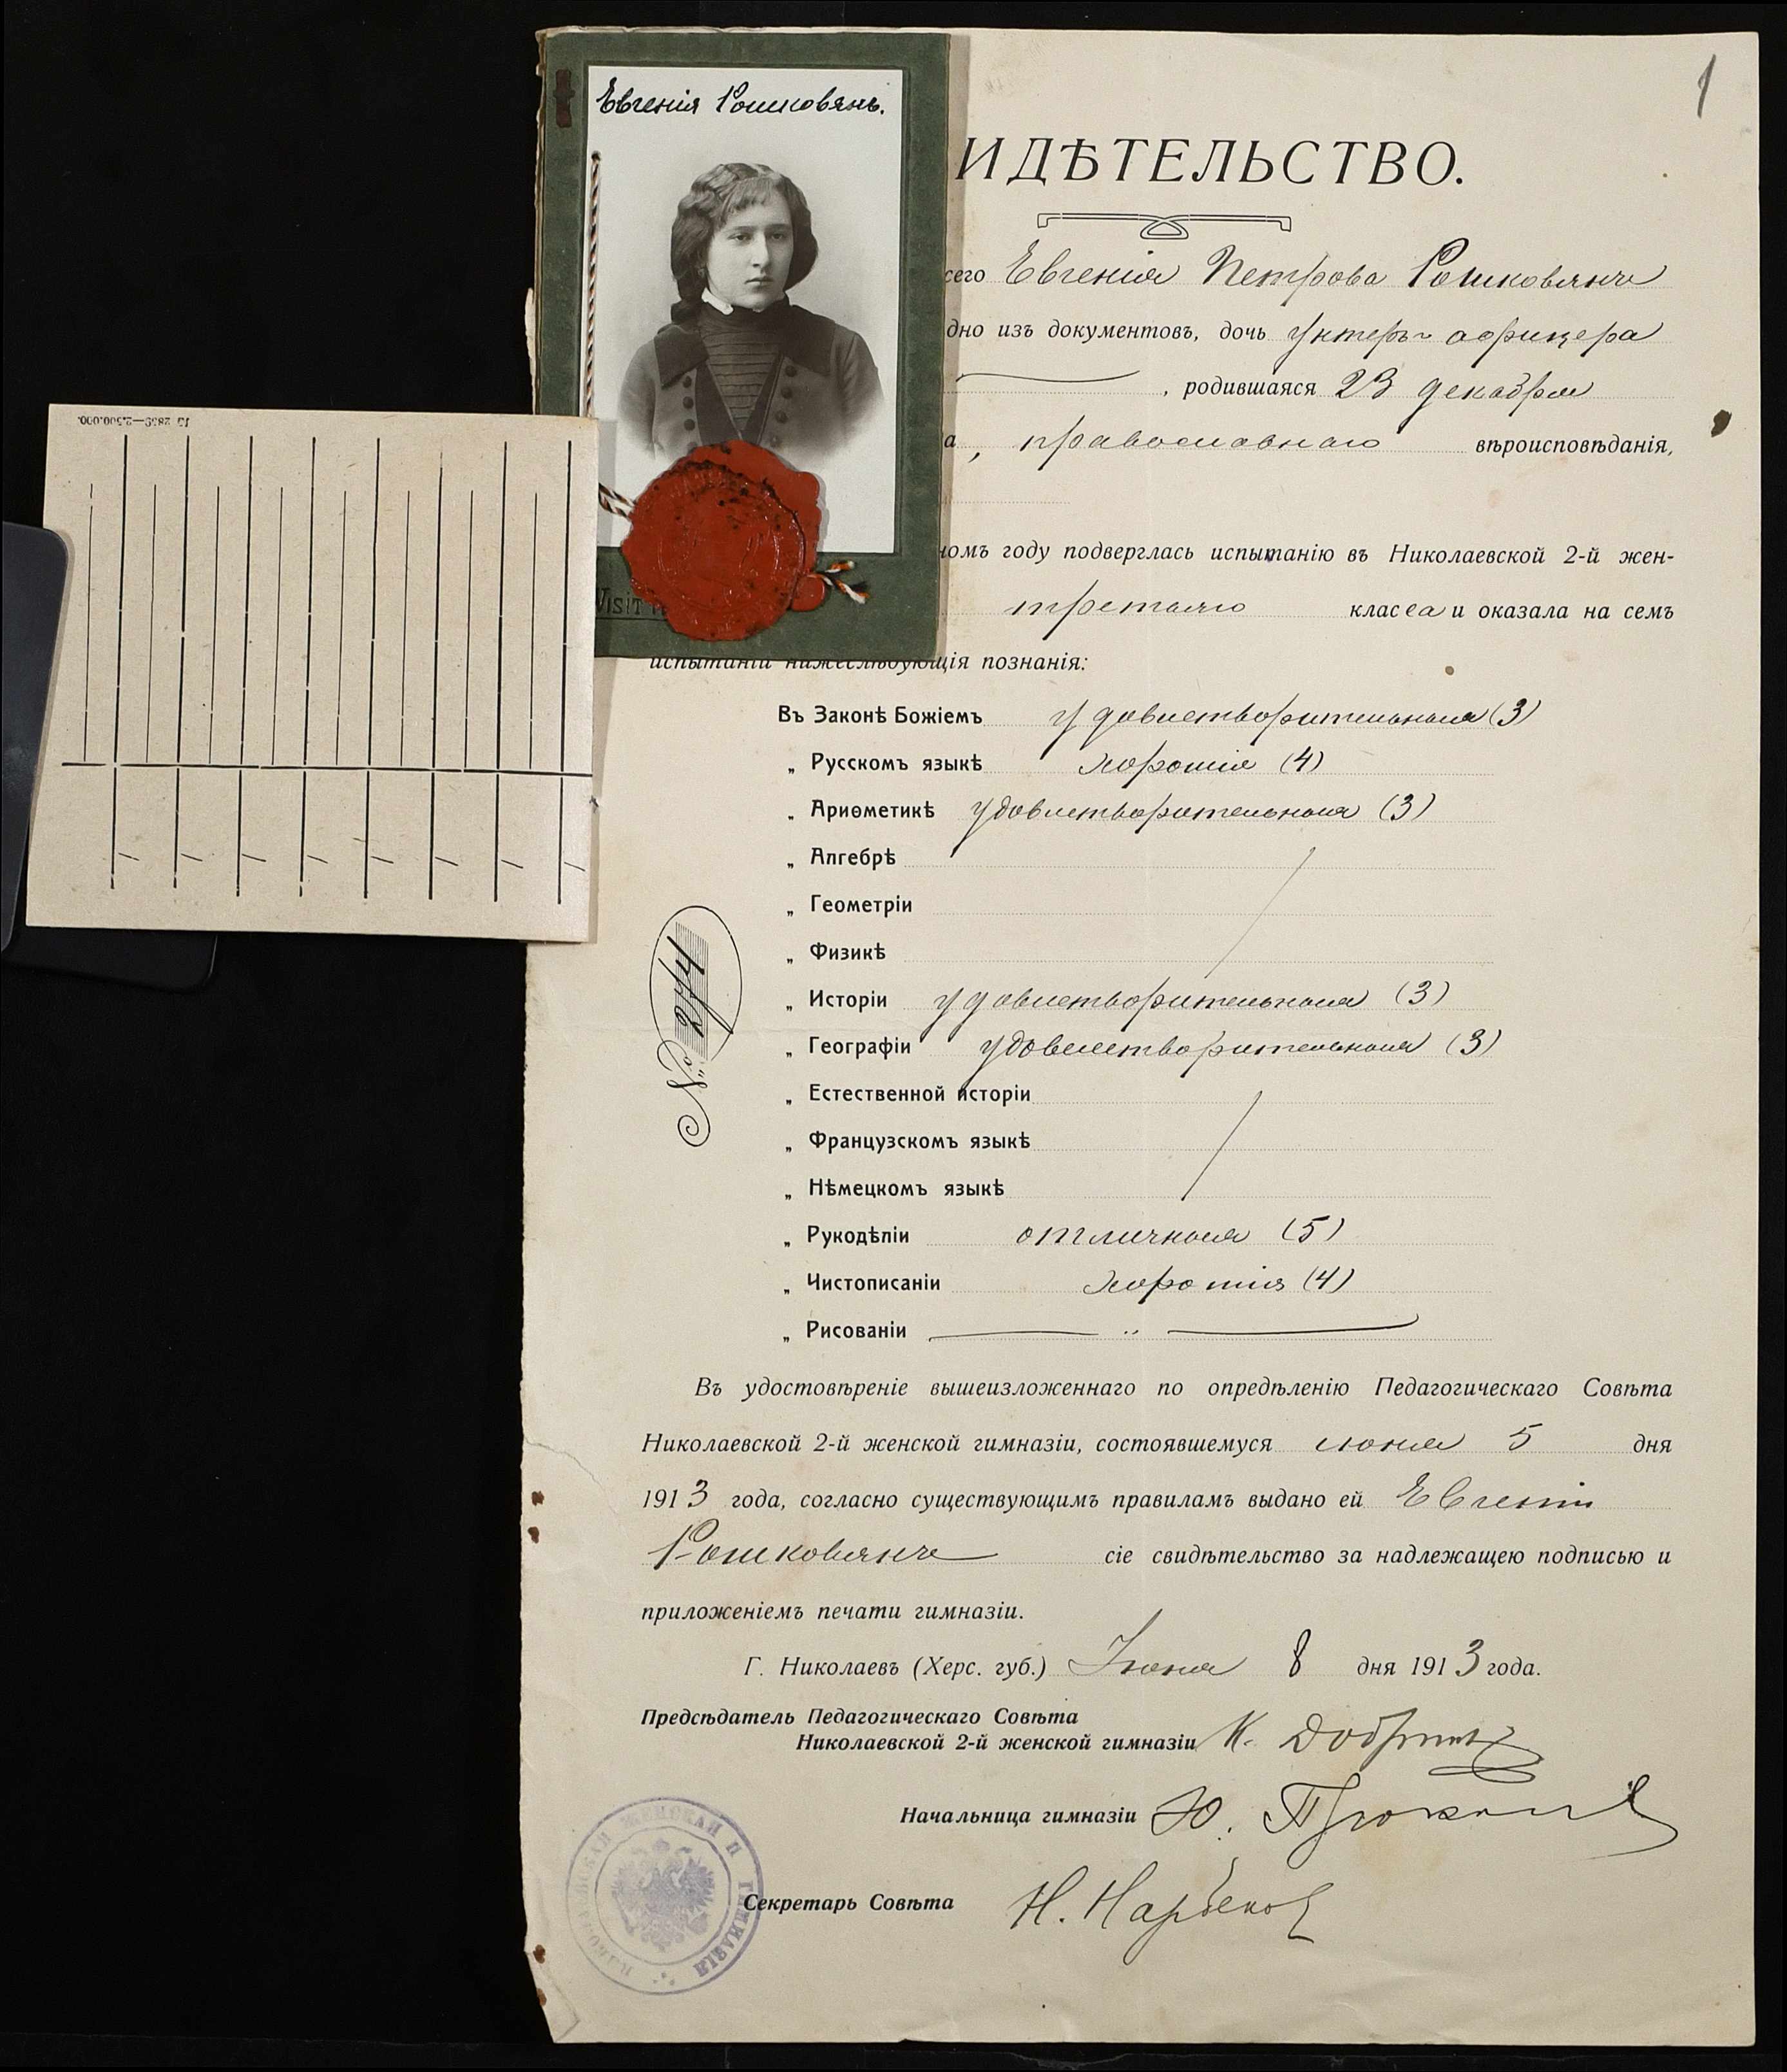 Евгенія Рошковянъ.
1
ИДѢТЕЛЬСТВО.
сего Евгенія Петрова Рошковянъ
дно изъ документовъ, дочь унтеръ-офицера
, родившаяся 23 декабря
а, православнаго вѣроисповѣданія,
номъ году подверглась испытанію въ Николаевской 2-й жен-
третьяго класса и оказала на семъ
испытаніи нижеслѣдующія познанія:
Въ Законѣ Божіемъ удовлетворительныя (3)
„ Русскомъ языкѣ хорошія (4)
„ Ариѳметикѣ удовлетворительныя (3)
„ Алгебрѣ
„ Геометріи
„ Физикѣ
„ Исторіи удовлетворительныя (3)
„ Географіи удовлетворительныя (3)
„ Естественной исторіи
„ Французскомъ языкѣ
„ Нѣмецкомъ языкѣ
„ Рукодѣліи отличныя (5)
„ Чистописаніи хорошія (4)
„ Рисованіи
№ 2744
Въ удостовѣреніе вышеизложеннаго по опредѣленію Педагогическаго Совѣта
Николаевской 2-й женской гимназіи, состоявшемуся іюня 5 дня
1913 года, согласно существующимъ правиламъ выдано ей Евгеніи
Рошковянъ сіе свидѣтельство за надлежащею подписью и
приложеніемъ печати гимназіи.
Г. Николаевъ (Херс. губ.) Іюня 8 дня 1913 года.
Предсѣдатель Педагогическаго Совѣта
Николаевской 2-й женской гимназіи К.
Начальница гимназіи Ю.
Секретарь Совѣта Н.
ЖЕНСКАЯ II ГИМНАЗІЯ
VISIT
2859—2.500.000.